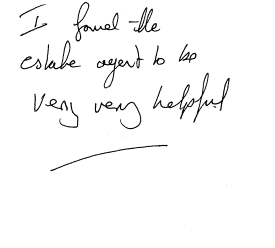 I found the
estate agent to be
very very helpful